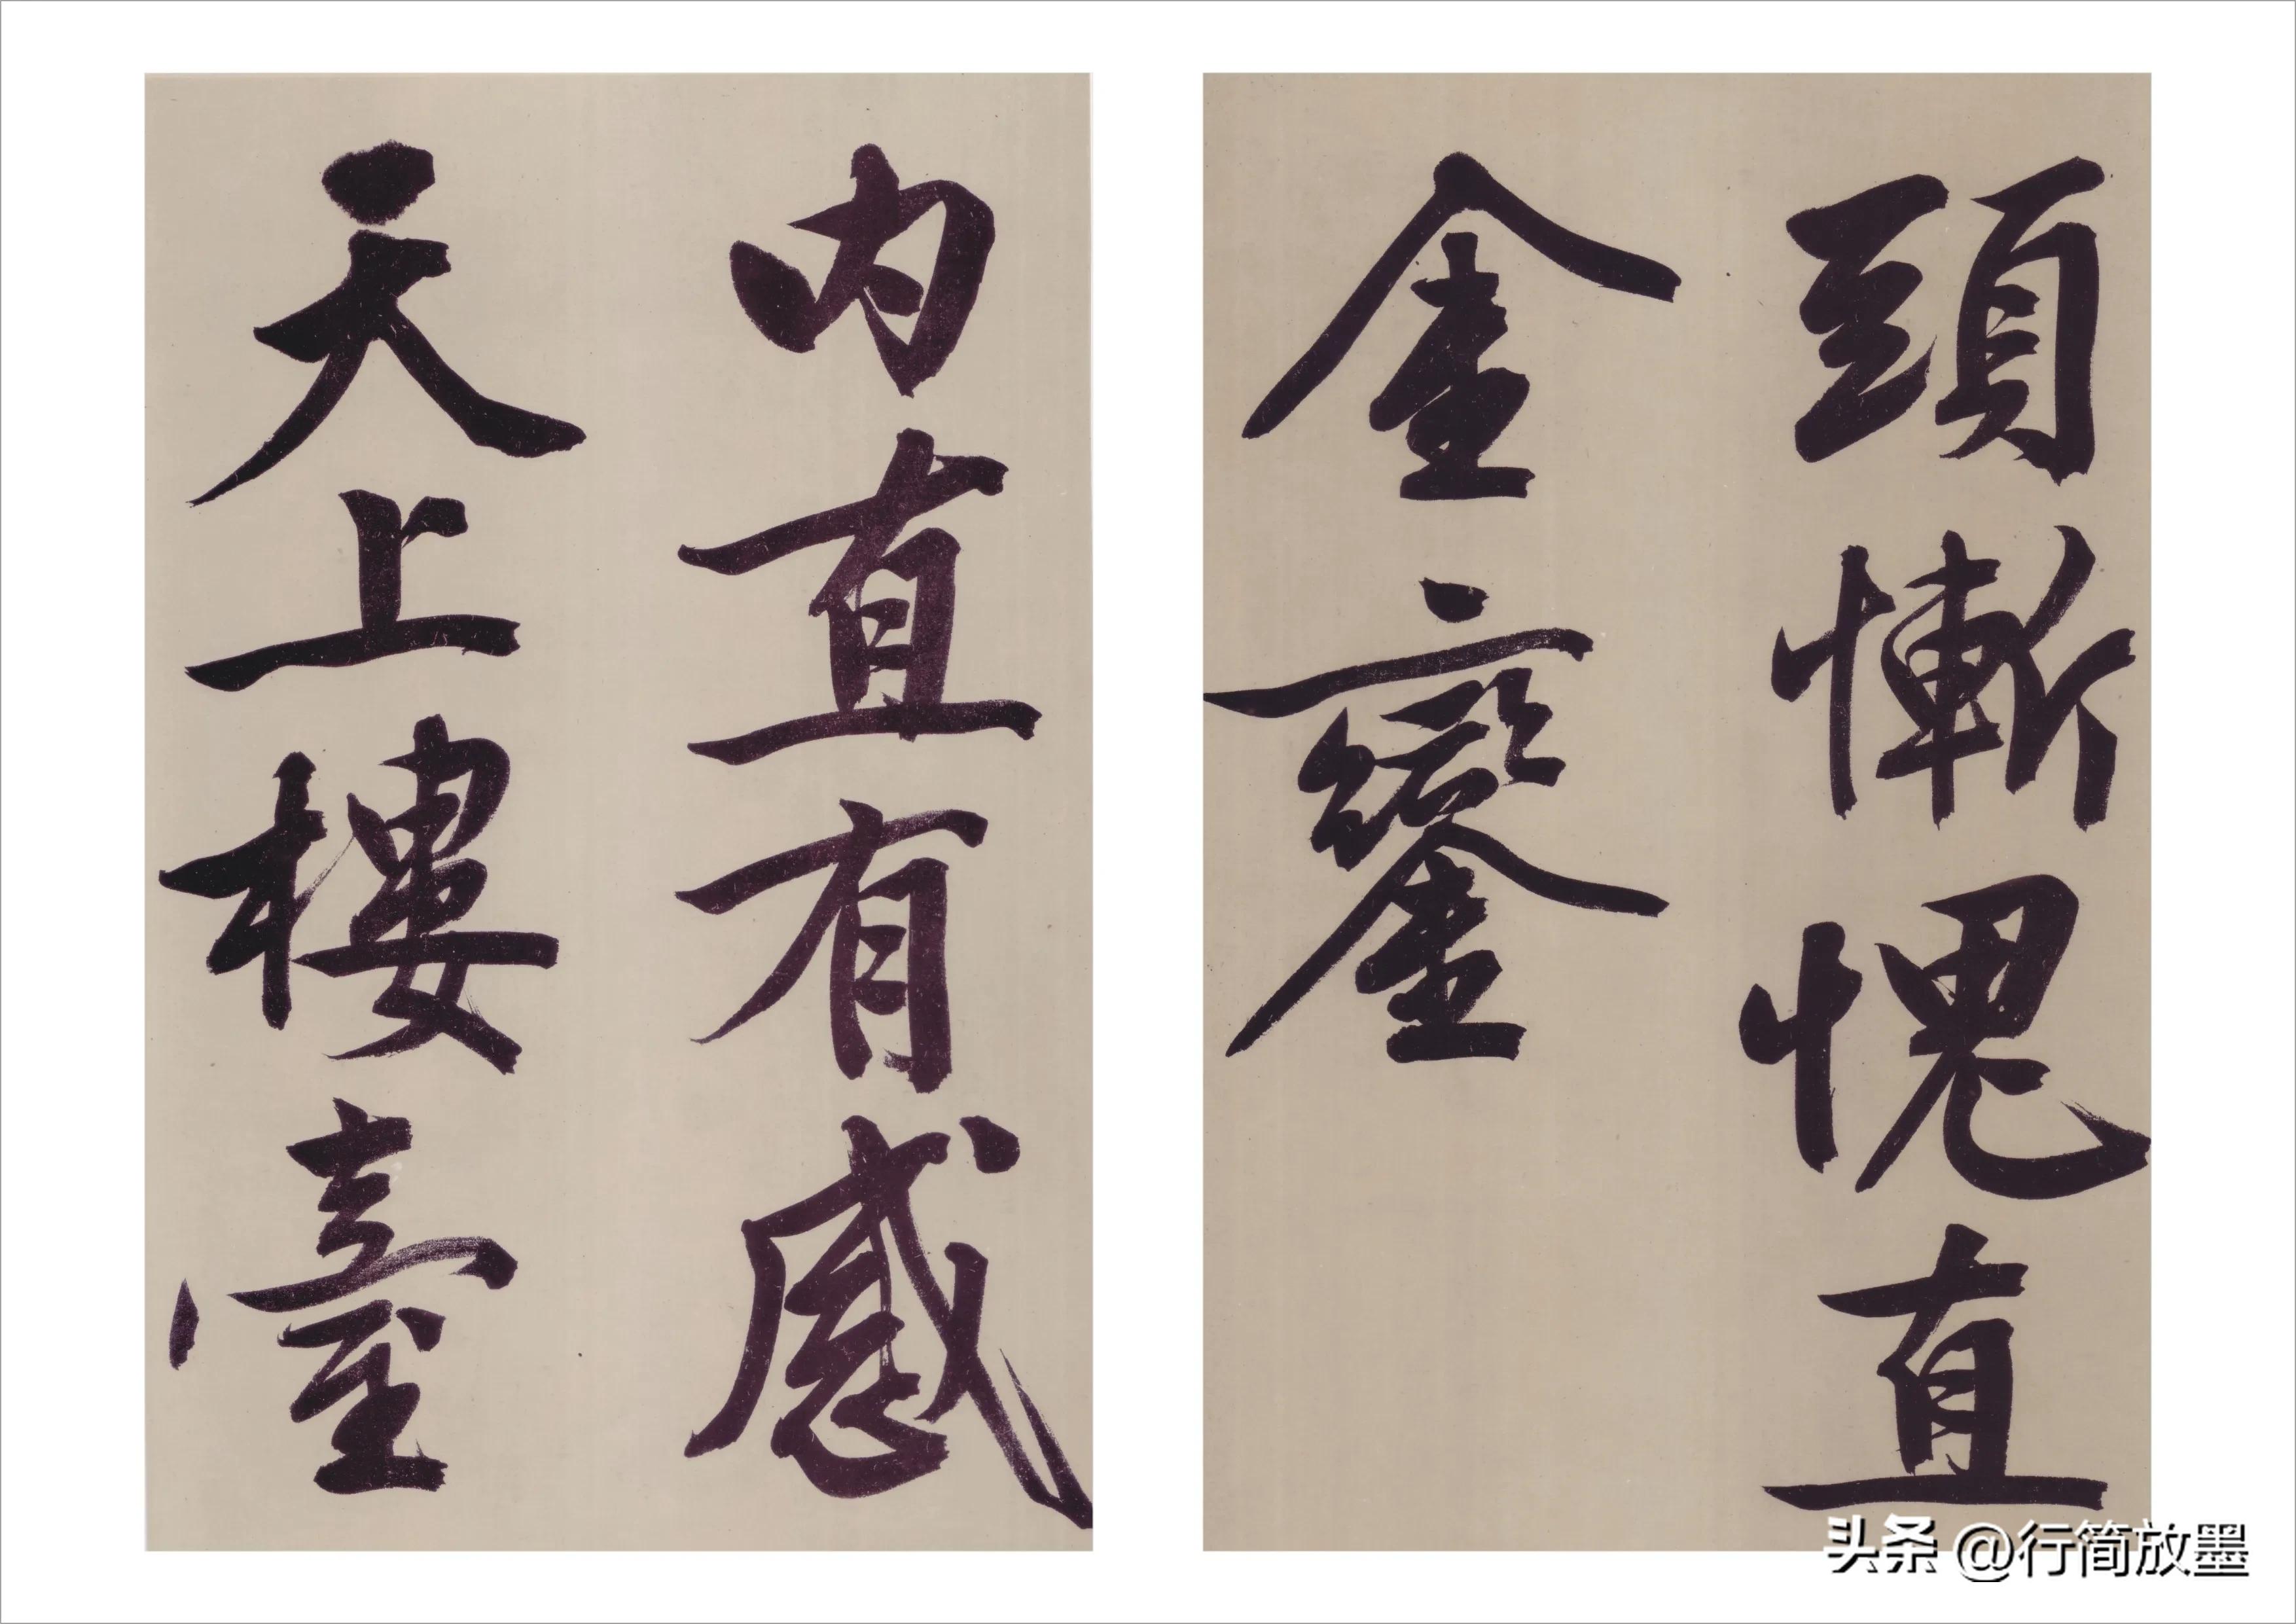 頭慚愧直
金鑾
内直有感
天上樓臺
头条 @行简放墨